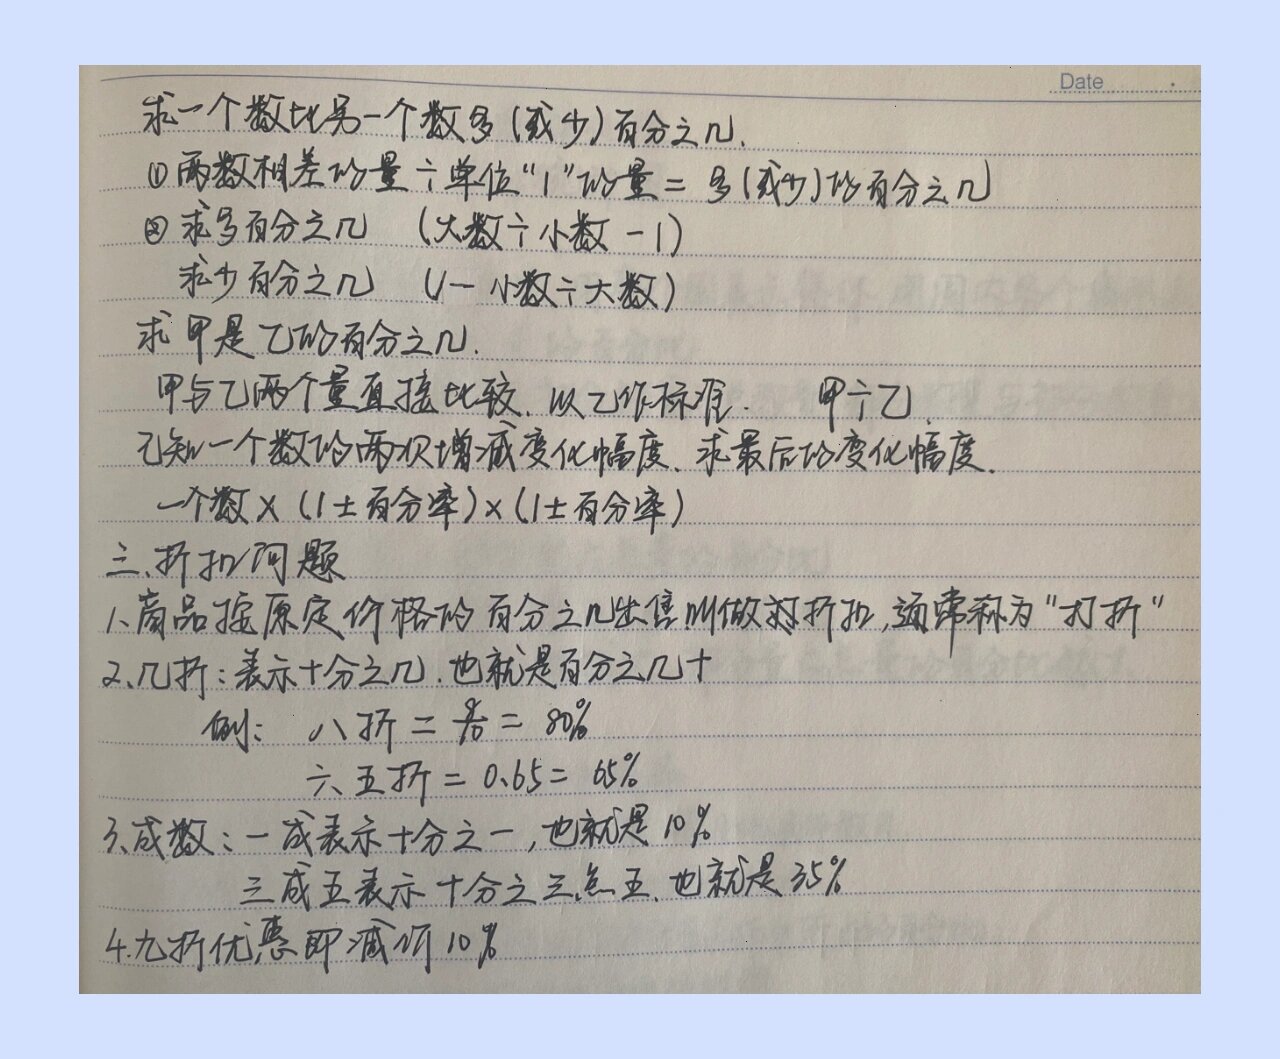 Date
求一个数比另一个数多(或少)百分之几.
①两数相差的量÷单位“1”的量=多(或少)的百分之几
②求多百分之几 (大数÷小数-1)
求少百分之几 (1-小数÷大数)
求甲是乙的百分之几.
甲与乙两个量直接比较.以乙作标准. 甲÷乙
已知一个数的两次增减变化幅度.求最后的变化幅度.
一个数×(1±百分率)×(1±百分率)
三.折扣问题
1.商品按原定价格的百分之几出售叫做打折扣,通常称为“打折”
2.几折:表示十分之几.也就是百分之几十
例: 八折=8/10=80%
六.五折=0.65=65%
3.成数:一成表示十分之一,也就是10%
三成五表示十分之三点五.也就是35%
4.九折优惠即减价10%